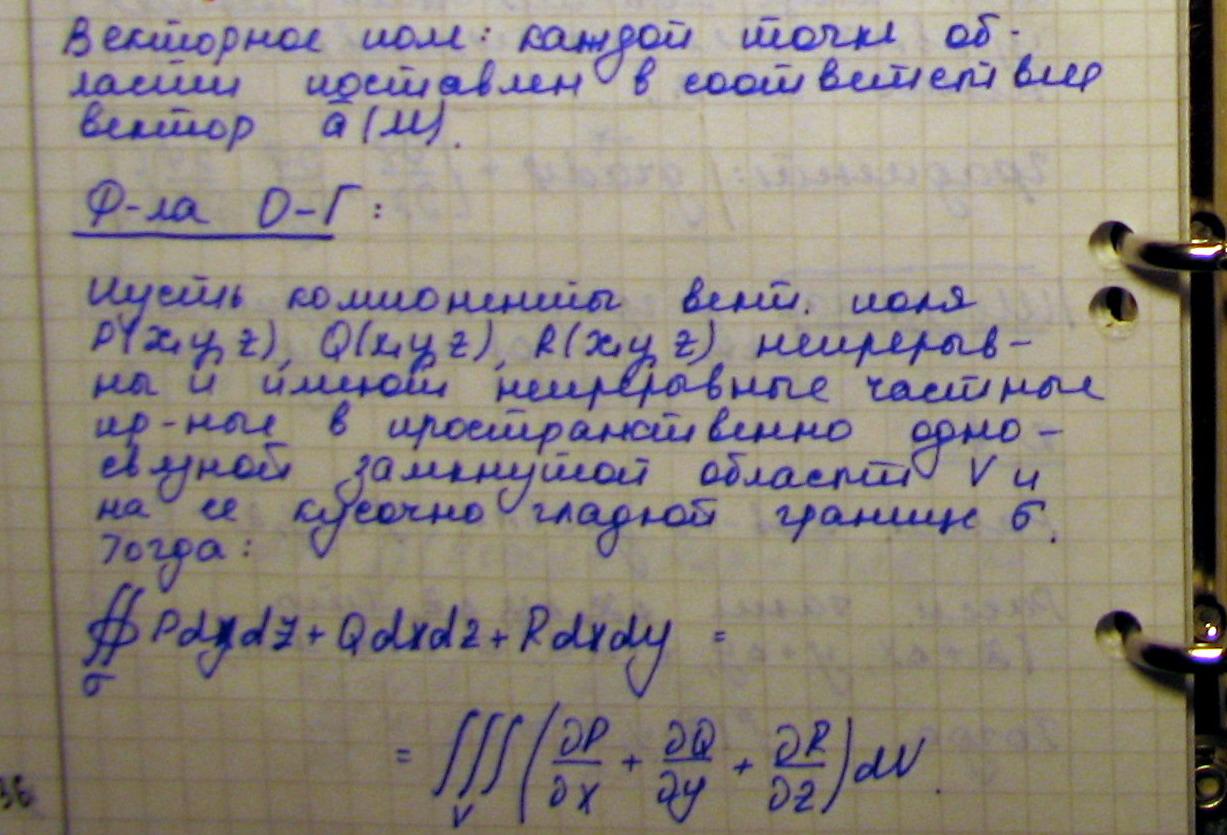 Векторное поле: каждой точке об-
ласти поставлен в соответствие
вектор a̅(M).
Ф-ла О-Г:
Пусть компоненты вект. поля
P(x,y,z), Q(x,y,z), R(x,y,z) непрерыв-
ны и имеют непрерывные частные
пр-ные в пространственно одно-
связной замкнутой области V и
на её кусочно гладкой границе σ.
Тогда:
∯ Pdydz + Qdxdz + Rdxdy =
σ
= ∭ (∂P/∂x + ∂Q/∂y + ∂R/∂z) dV.
V
36